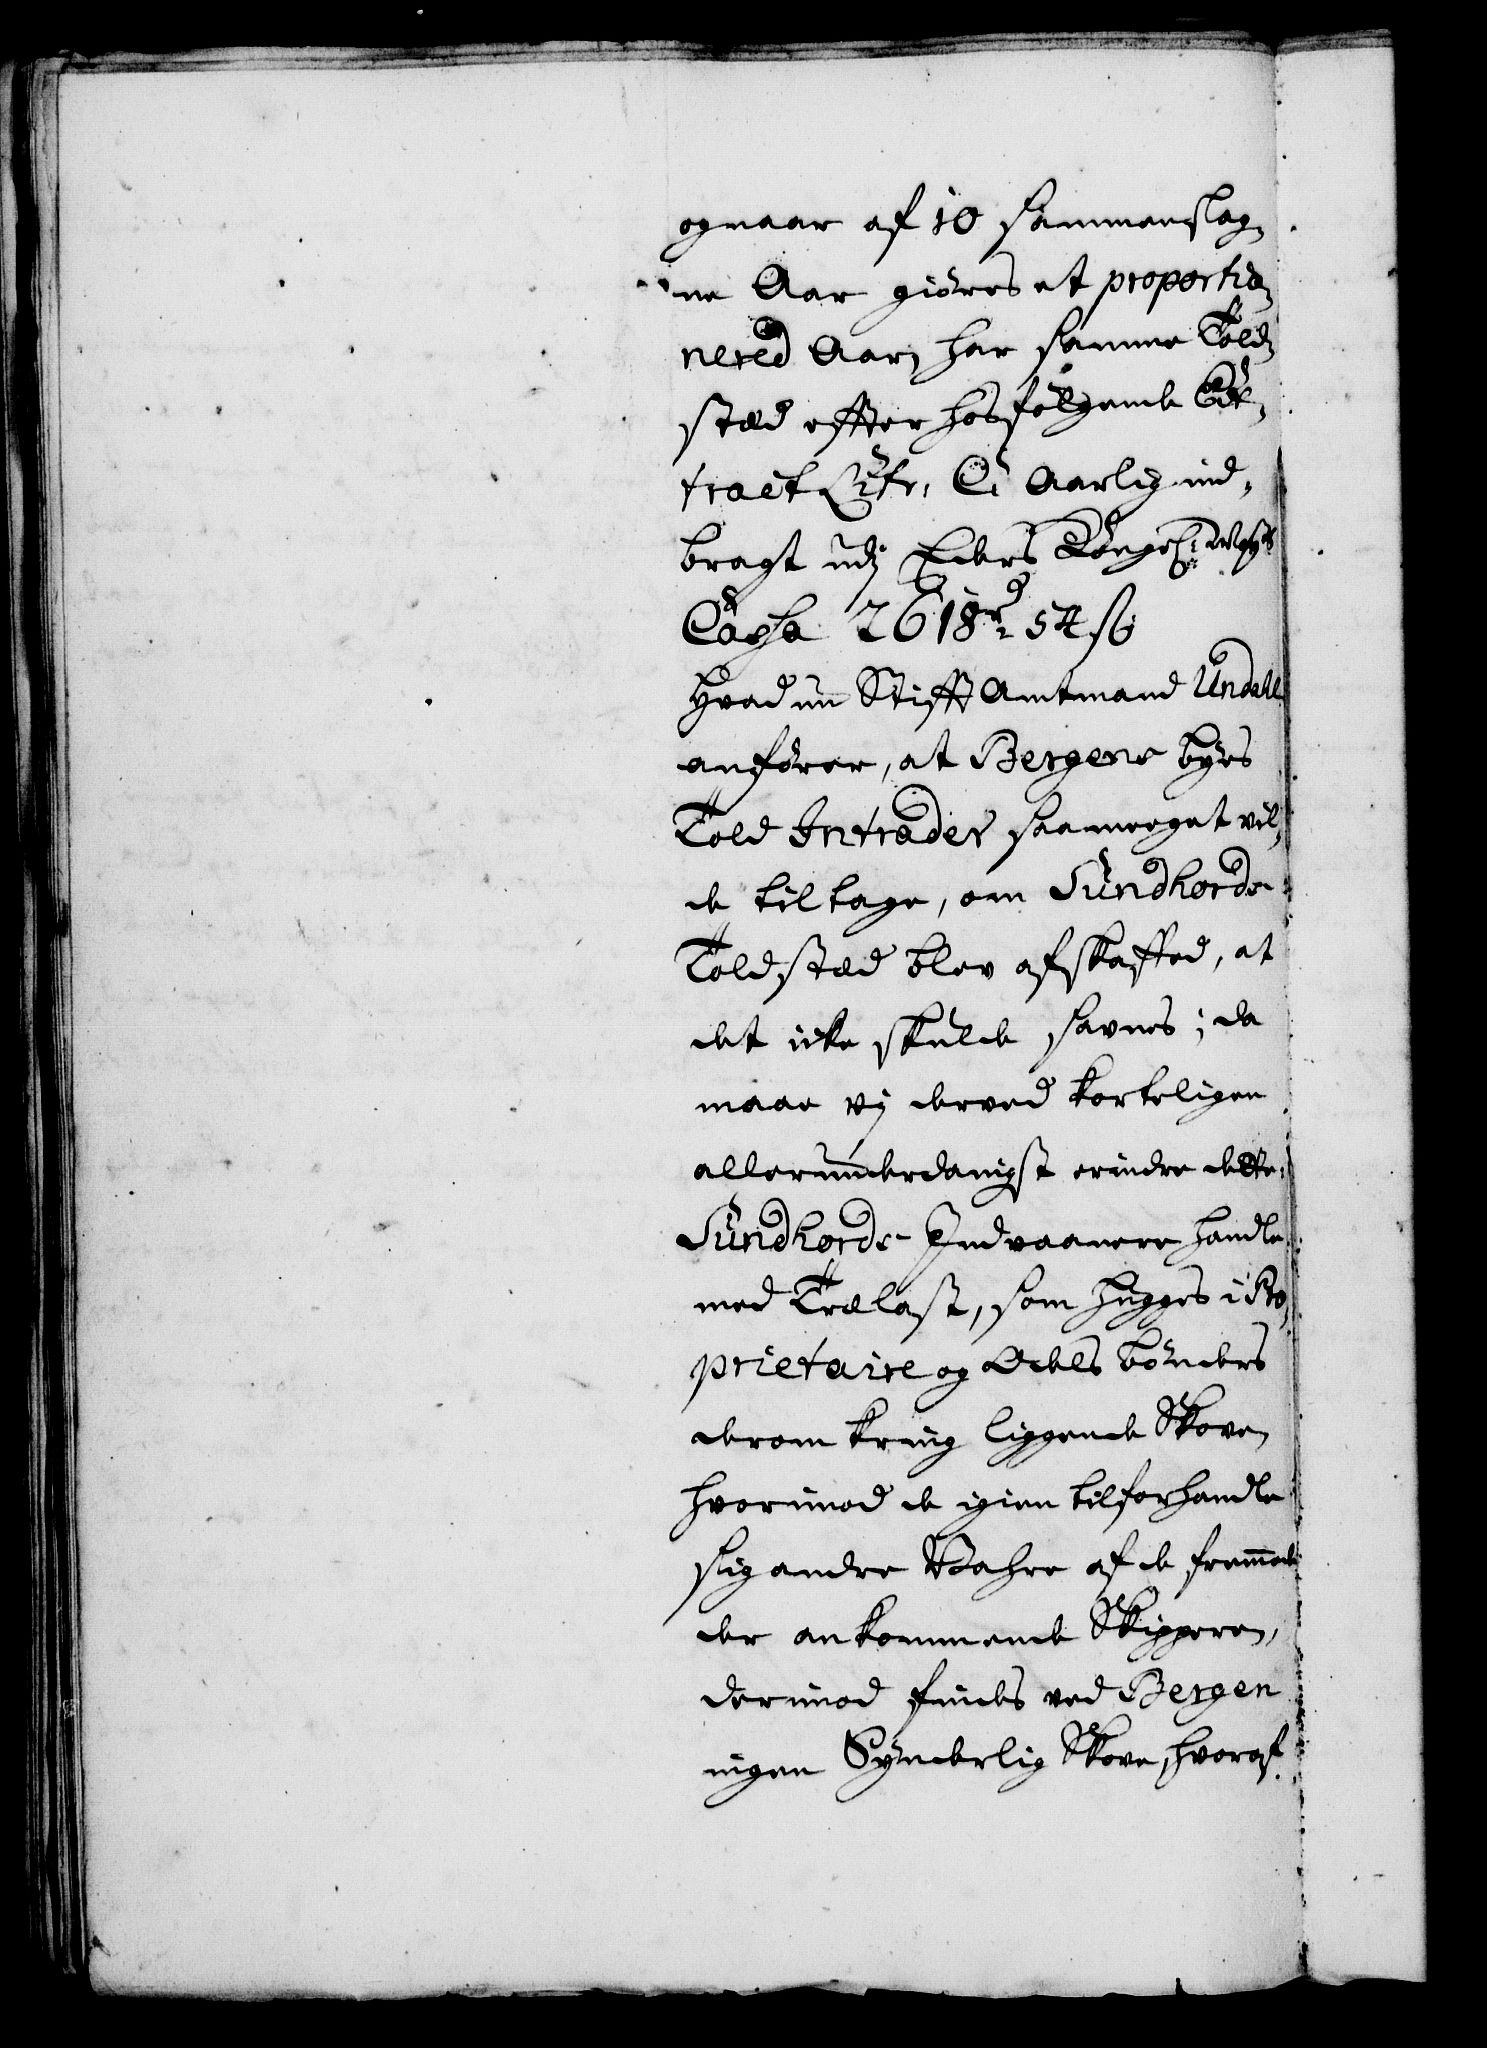 ognaar af 10 sammenslag,
ne Aar giöres et proportio,
nered Aar, har samme Told,
stæd effter hosfölgende Ex,
tract Litr. C. Aarlig ind,
bragt udj Eders Kongel: Mayts
Cassa 2618 rd 54 s
Hvad nu Stifft Amtmand Undall
anförer, at Bergens byes
Told Intrader saameeget vil,
de tiltage, om Sundhords
Toldstæd blev afskaffed, at
det icke skulde savnes; da
maae vj derved korteligen
allerunderdanigst erindre dette:
Sundhords Indvaanere handle
med Trælast, som hugges i Pro,
prietaire og Odels bönders
derom kring liggende Skove,
hvorimod de igien tilforhandle
sig andre Wahre af de fremmede
der ankommende Skippere,
derimod findes ved Bergen
ingen Synderlig Skove, hvoraf